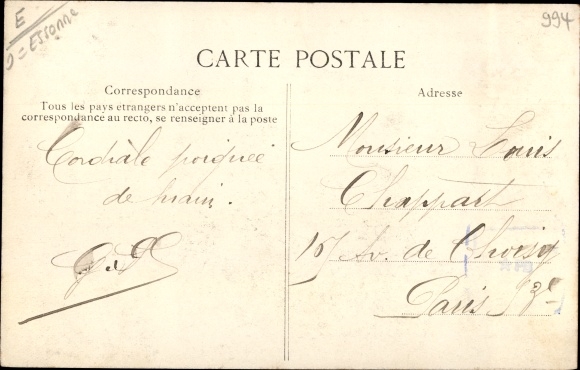 E
D = ESSONNE
994
CARTE POSTALE
Correspondance
Tous les pays étrangers n'acceptent pas la
correspondance au recto, se renseigner à la poste
Cordiale poignée
de main.
Adresse
Monsieur Louis
Chappart
Av. de Choisy
Paris 13e